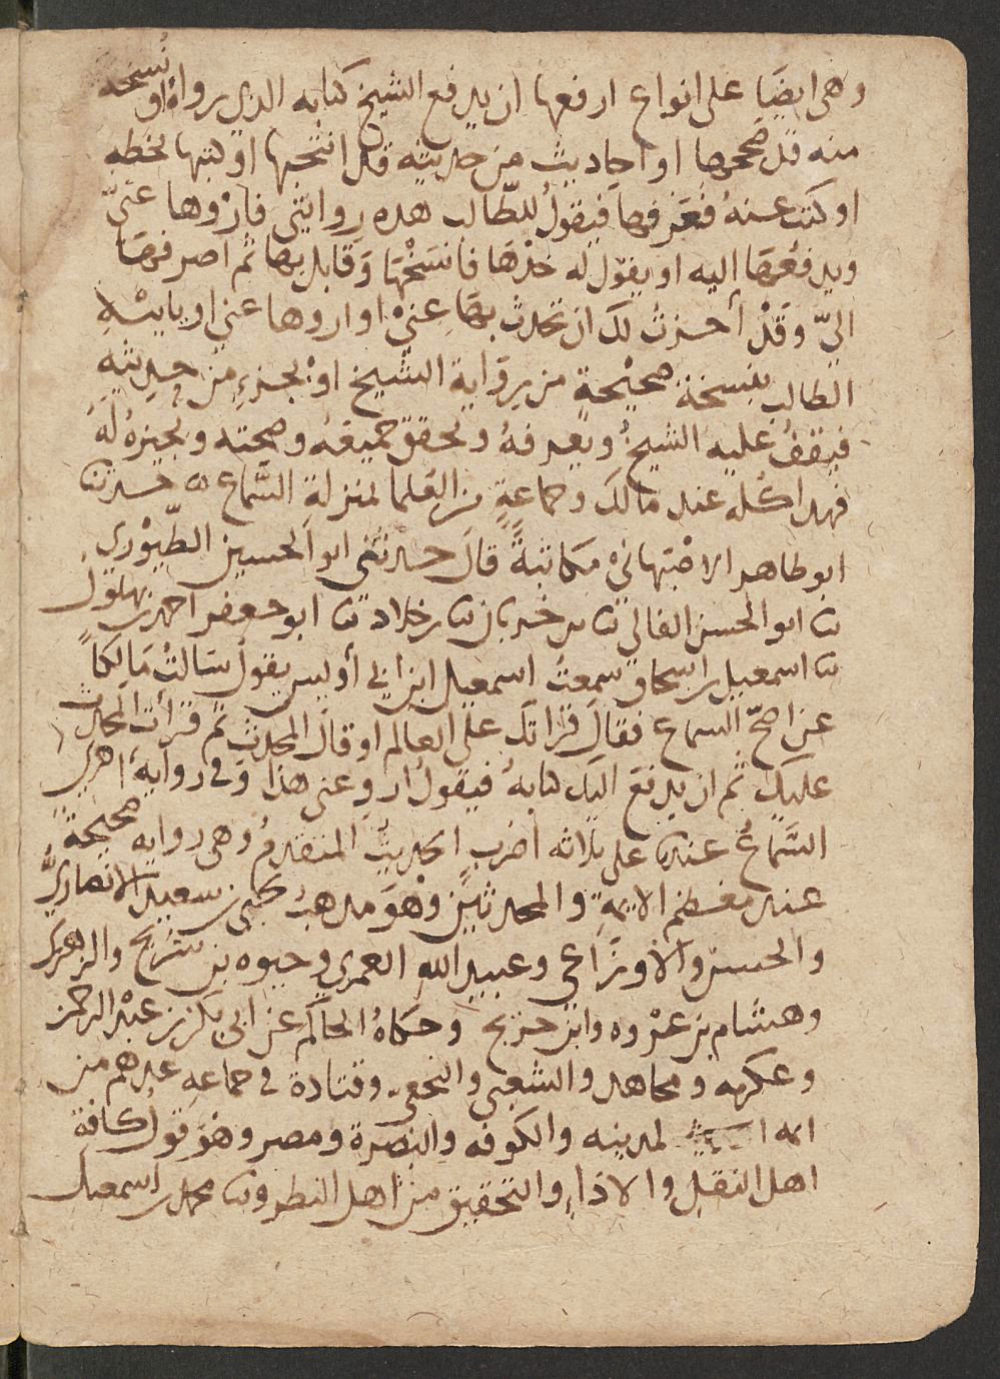 وهى ايضًا على انواع ارفعها ان يدفع الشيخ كتابه الذي رواه او نسخه
منه قد صححها او احاديث من حديثه قد انتخبها او كتبها بخطه
او كتبت عنه فعرفها فيقول للطالب هذه روايتي فارْوها عنّي
ويدفعها إليه او يقول له خذها فانسَخْها وقابل بها ثم اصرفها
اليّ وقَدْ أجزتُ لك ان تحدث بها عنيْ او اروها عني او ياتيْهِ
الطالب بنسخة صحيْحةٍ من رواية الشيخ اوْ بجزءٍ من حديثهِ
فيقفُ عليه الشيخُ ويعرفهُ ويحقق جميعَهُ وصحته ويجيزهُ لهُ
فهذا كله عند مالك وجماعةٍ من العلما بمنزلة السَّماع ۞ حدثنا
ابو طاهر الاصْبَهانيْ مكاتبةً قالَ حدثني ابو الحسين الطّيوْري
نا ابو الحسن الفالي نا بن خربان نا بن خلاد نا ابو جعفر احمد بن بهلول
نا اسمعيل بن اسحاق سمعتُ اسمعيل ابن ابي أويس يقول سَالتُ مَالِكاً
عن اصحّ السماع فقالَ قراتك على العالم او قال المحدث ثم قرأت المحدث
عليك ثم ان يدفع اليك كتابهُ فيقولُ اروِ عني هذا وَفي روايةٍ اخرى
السَّماعُ عندنا على ثلاثه اضرب الحديث المتقدمُ وهى روايه صحيحةٌ
عند معظم الايمةِ والمحدثيْنِ وهْوَ مذهبُ يحيى بن سعيد الانصاريُّ
والحسن والاوزَاعي وعبيد الله العمري وحيوه بن شُريح والزهري
وهشام بن عرْوه وابن جريج وحكاهُ الحاكم عن ابي بكر بن عبْد الرحمن
وعكرمه ومجاهد والشعبي والنخعي وقتادة في جماعه غيرهم من
ايمه المدينه والكوفه والبَصرَة ومصر وهوَ قول كافة
اهل النقل والاداءِ والتحقيق من اهل النظر ونا محمد بن اسمعيل